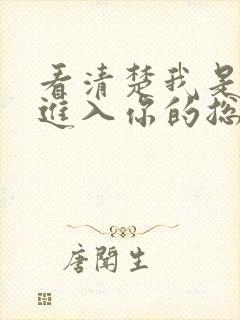 看清楚我是
進入你的総
唐聞生